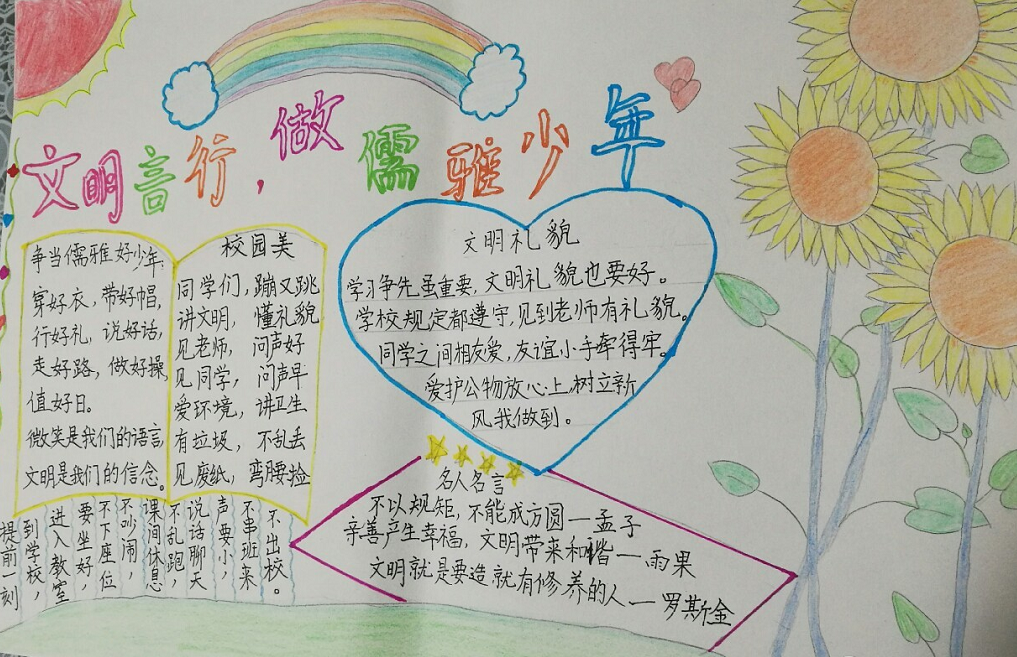 文明言行，做儒雅少年
争当儒雅好少年:
穿好衣，带好帽，
行好礼，说好话，
走好路，做好操，
值好日。
微笑是我们的语言，
文明是我们的信念。
校园美
同学们，蹦又跳
讲文明，懂礼貌
见老师，问声好
见同学，问声早
爱环境，讲卫生
有垃圾，不乱丢
见废纸，弯腰捡
文明礼貌
学习争先虽重要，文明礼貌也要好。
学校规定都遵守，见到老师有礼貌。
同学之间相友爱，友谊小手牵得牢。
爱护公物放心上，树立新
风我做到。
名人名言
不以规矩，不能成方圆—孟子
亲善产生幸福，文明带来和谐—雨果
文明就是要造就有修养的人—罗斯金
提前一刻
到学校，
进入教室
要坐好，
不下座位
不吵闹，
课间休息
不乱跑，
说话聊天
声要小，
不串班来
不出校。